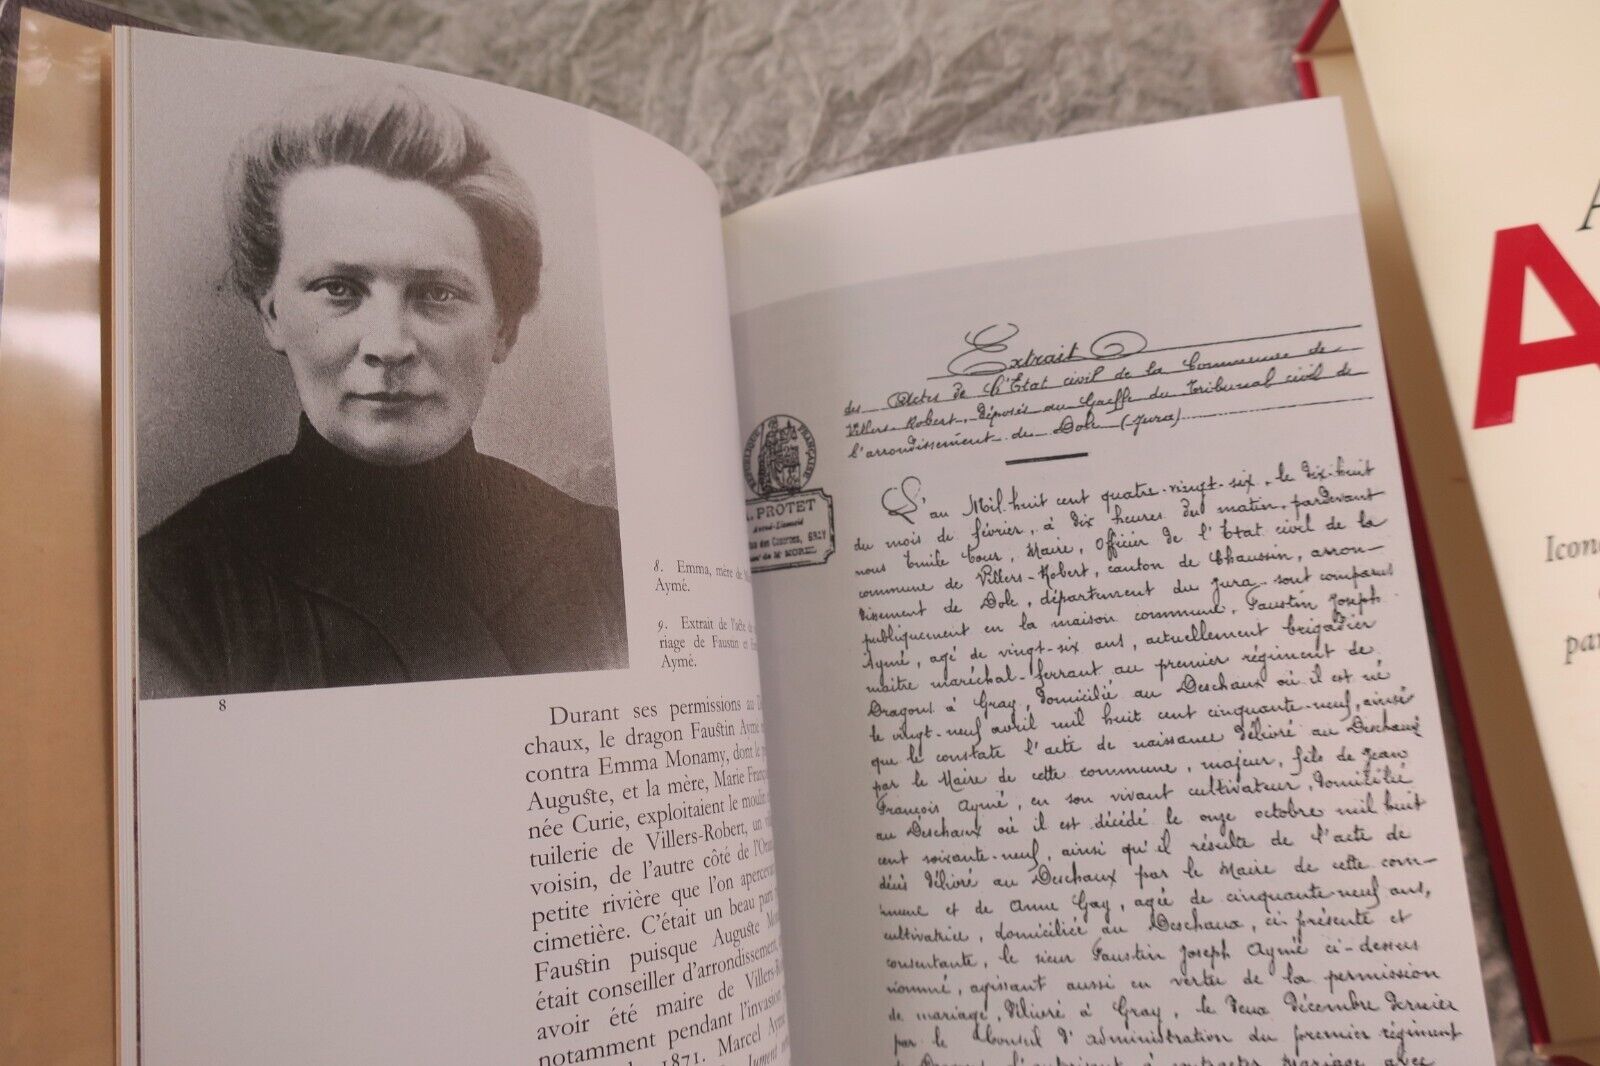 8. Emma, mère de
Aymé.
9. Extrait de l'acte
riage de Faustin et
Aymé.
8
Durant ses permissions au
chaux, le dragon Faustin Aymé
contra Emma Monamy, dont le
Auguste, et la mère, Marie
née Curie, exploitaient le moulin
tuilerie de Villers-Robert, un
voisin, de l'autre côté de
petite rivière que l'on
cimetière. C'était un beau parti
Faustin puisque Auguste
était conseiller d'arrondissement,
avoir été maire de
notamment pendant l'invasion
1871. Marcel
Jument
Extrait
des Actes de l'État civil de la Commune de
Villers-Robert, déposés au Greffe du Tribunal civil de
l'arrondissement de Dole (Jura)
RÉPUBLIQUE FRANÇAISE
PROTET
GRAY
MOREL
L'an Mil huit cent quatre-vingt-six, le dix-huit
du mois de février, à dix heures du matin, pardevant
nous Emile Cour, Maire, Officier de l'Etat civil de la
commune de Villers-Robert, canton de Chaussin, arron-
dissement de Dole, département du Jura sont comparus
publiquement en la maison commune, Faustin Joseph
Aymé, agé de vingt-six ans, actuellement brigadier
maître maréchal-ferrant au premier régiment de
Dragons à Gray, domicilié au Deschaux où il est né
le vingt-neuf avril mil huit cent cinquante-neuf, ainsi
que le constate l'acte de naissance délivré au Deschaux
par le Maire de cette commune, majeur, fils de Jean
François Aymé, en son vivant cultivateur, domicilié
au Deschaux où il est décédé le onze octobre mil huit
cent soixante-neuf, ainsi qu'il résulte de l'acte de
décès délivré au Deschaux par le Maire de cette com-
mune et de Anne Gay, agée de cinquante-neuf ans,
cultivatrice, domiciliée au Deschaux, ci-présente et
consentante, le sieur Faustin Joseph Aymé ci-dessus
nommé, agissant aussi en vertu de la permission
de mariage, délivré à Gray, le deux décembre dernier
par le Conseil d'administration du premier régiment
de Dragons l'autorisant à contracter mariage avec
A
A
Icon
pa